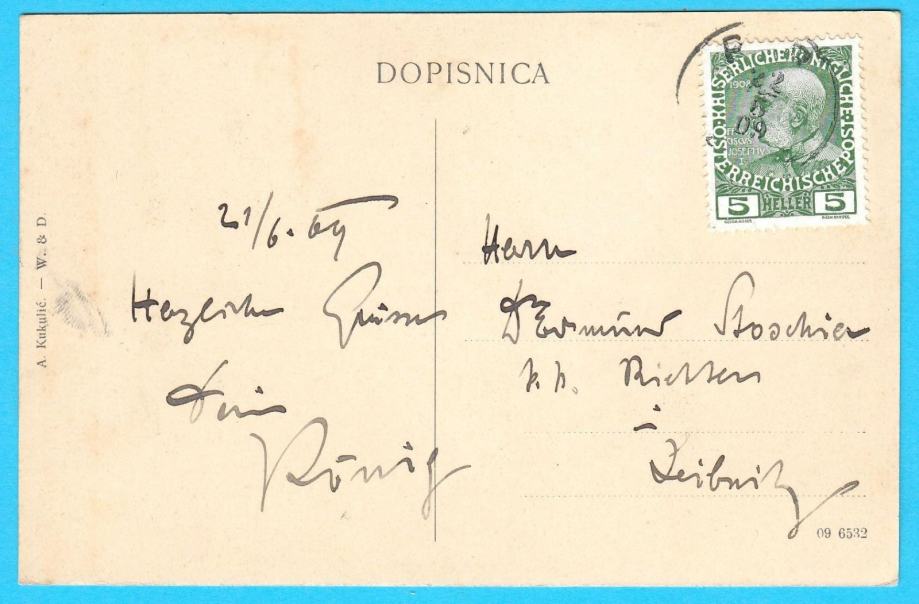 DOPISNICA
A. Kukulić. — W. & D.
21/6. 09
Herzliche Grüsse
Dein
König
KAISERLICHE KÖNIGLICHE ÖSTERREICHISCHE POST
1908
JOSEPHVS
5 HELLER 5
09
Herrn
Dr
k. k. Richter
i
Leibnitz
09 6532